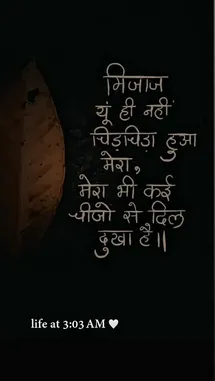 मिजाज
यूं ही नहीं
चिड़चिड़ा हुआ
मेरा,
मेरा भी कई
चीजो से दिल
दुखा है।।
life at 3:03 AM 🤍